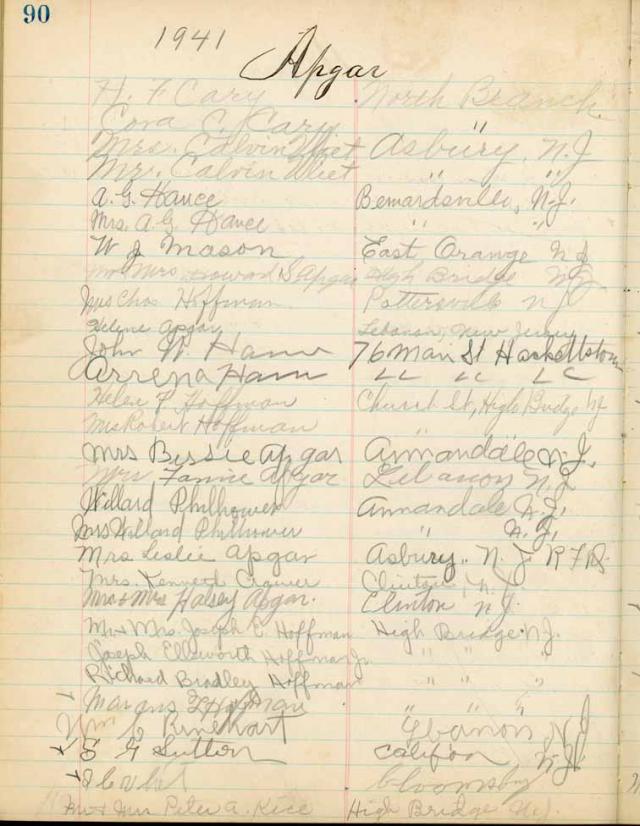 90
1941
Apgar
H. F. Cary North Branch.
Cora C. Cary "
Mrs. Calvin Vliet Asbury, N.J
Mr. Calvin Vliet " "
A. G. Hance Bernardsville, N.J.
Mrs. A G Hance " "
W J Mason East Orange N J
Mr Mrs Howard S Apgar High Bridge NJ
Mrs Chas Hoffman Pottersville NJ
Helene Apgar Lebanon, New Jersey
John W. Hann 76 Main St Hackettstown
Arrena Hann LL LL LC
Helen P Hoffman Church St, High Bridge NJ
Mrs Robert Hoffman
Mrs Bessie Apgar Annandale N.J.
Mrs Fannie Apgar Lebanon N.J.
Willard Philhower Annandale N.J.
Mrs Willard Philhower " N.J.
Mrs Leslie Apgar Asbury. N J RFD.
Mrs. Kenneth Clinton, N.J.
Mr & Mrs Halsey Apgar. Clinton N J.
Mr & Mrs. Joseph E. Hoffman High Bridge N.J.
Joseph Ellsworth Hoffman Jr. " " "
Richard Bradley Hoffman " " "
Hoffman " " "
Wm J Rinehart Lebanon, N J
E G Sutton Califon, N.J.
Bloomsbury
Mr & Mrs Peter A. Rice High Bridge N.J.